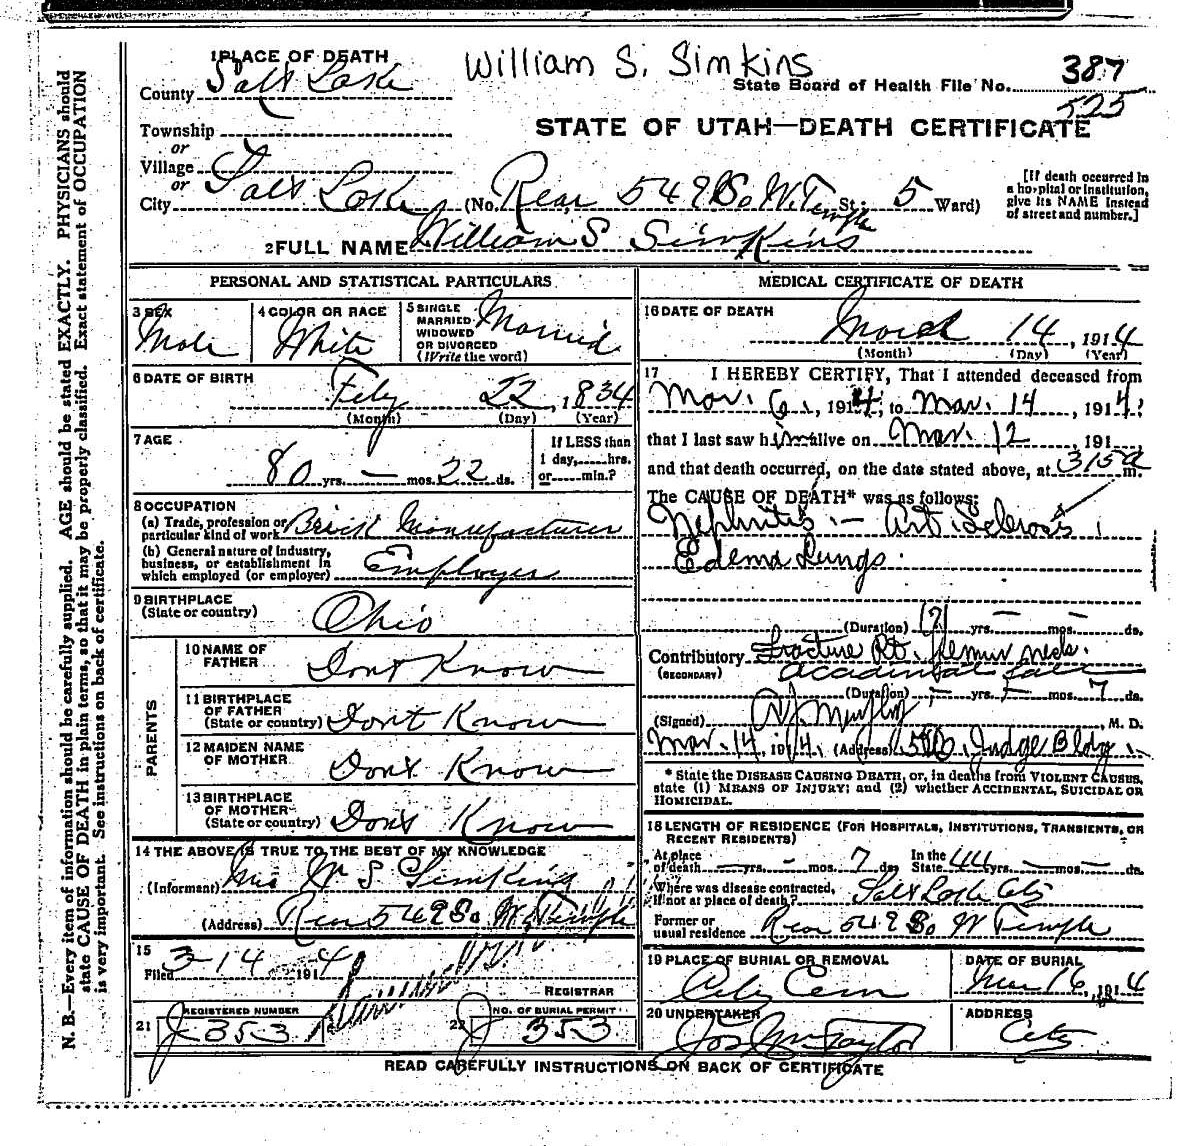 William S. Simkins
1 PLACE OF DEATH
County Salt Lake
State Board of Health File No. 387
525
Township
or
Village
or
City Salt Lake (No. Rear 549 So W. Temple St; 5 Ward)
STATE OF UTAH—DEATH CERTIFICATE
[If death occurred in a hospital or institution, give its NAME instead of street and number.]
2 FULL NAME William S Simkins
PERSONAL AND STATISTICAL PARTICULARS
3 SEX
Male
4 COLOR OR RACE
White
5 SINGLE MARRIED WIDOWED OR DIVORCED (Write the word)
Married
6 DATE OF BIRTH
Feby 22, 1834
(Month) (Day) (Year)
7 AGE
80 yrs. — mos. 22 ds.
If LESS than 1 day, hrs. or min.?
8 OCCUPATION
(a) Trade, profession or particular kind of work Brick Manufacturer
(b) General nature of industry, business, or establishment in which employed (or employer) Employer
9 BIRTHPLACE (State or country) Ohio
PARENTS
10 NAME OF FATHER Dont Know
11 BIRTHPLACE OF FATHER (State or country) Dont Know
12 MAIDEN NAME OF MOTHER Dont Know
13 BIRTHPLACE OF MOTHER (State or country) Dont Know
14 THE ABOVE IS TRUE TO THE BEST OF MY KNOWLEDGE
(Informant) Mrs W S Simkins
(Address) Rear 549 So W. Temple
15
Filed 3-14 1914
REGISTRAR
21 REGISTERED NUMBER
J 353
22 NO. OF BURIAL PERMIT
J 353
MEDICAL CERTIFICATE OF DEATH
16 DATE OF DEATH
March 14, 1914
(Month) (Day) (Year)
17 I HEREBY CERTIFY, That I attended deceased from
Mar. 6, 1914, to Mar. 14, 1914,
that I last saw him alive on Mar. 12, 191
and that death occurred, on the date stated above, at 315a m.
The CAUSE OF DEATH* was as follows:
Nephritis — Art. Sclerosis
Edema Lungs.
(Duration) (?) yrs. — mos. — ds.
Contributory Fracture Rt. femur neck.
(SECONDARY) accidental fall
(Duration) — yrs. — mos. 7 ds.
(Signed) M. D.
Mar. 14, 1914. (Address) Judge Bldg
* State the DISEASE CAUSING DEATH, or, in deaths from VIOLENT CAUSES, state (1) MEANS OF INJURY; and (2) whether ACCIDENTAL, SUICIDAL OR HOMICIDAL.
18 LENGTH OF RESIDENCE (FOR HOSPITALS, INSTITUTIONS, TRANSIENTS, OR RECENT RESIDENTS)
At place of death — yrs. — mos. 7 ds. In the State 44 yrs. — mos. — ds.
Where was disease contracted, if not at place of death? Salt Lake City
Former or usual residence Rear 549 So W Temple
19 PLACE OF BURIAL OR REMOVAL
City Cem
DATE OF BURIAL
Mar 16, 1914
20 UNDERTAKER
Jos Wm Taylor
ADDRESS
City
READ CAREFULLY INSTRUCTIONS ON BACK OF CERTIFICATE
N. B.—Every item of information should be carefully supplied. AGE should be stated EXACTLY. PHYSICIANS should
state CAUSE OF DEATH in plain terms, so that it may be properly classified. Exact statement of OCCUPATION
is very important. See instructions on back of certificate.